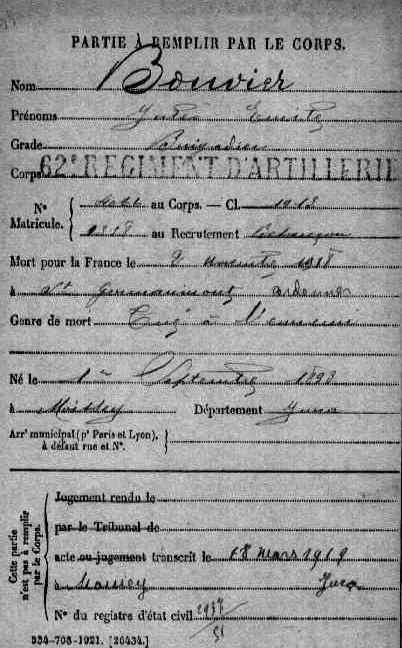 PARTIE À REMPLIR PAR LE CORPS.
Nom Bouvier
Prénoms Jules Emile
Grade Brigadier
Corps 62e REGIMENT D'ARTILLERIE
N° Matricule. { au Corps. — Cl. 1913
1318 au Recrutement Besançon
Mort pour la France le 2 novembre 1918
à St Germainmont Ardennes
Genre de mort Tué à l'ennemi
Né le 1er Septembre 1893
à Département Jura
Arrt municipal (pr Paris et Lyon), à défaut rue et N°. }
Cette partie n'est pas à remplir par le Corps.
Jugement rendu le
par le Tribunal de
acte ou jugement transcrit le 18 mars 1919
à Jura
N° du registre d'état civil
534-708-1921. [26434.]